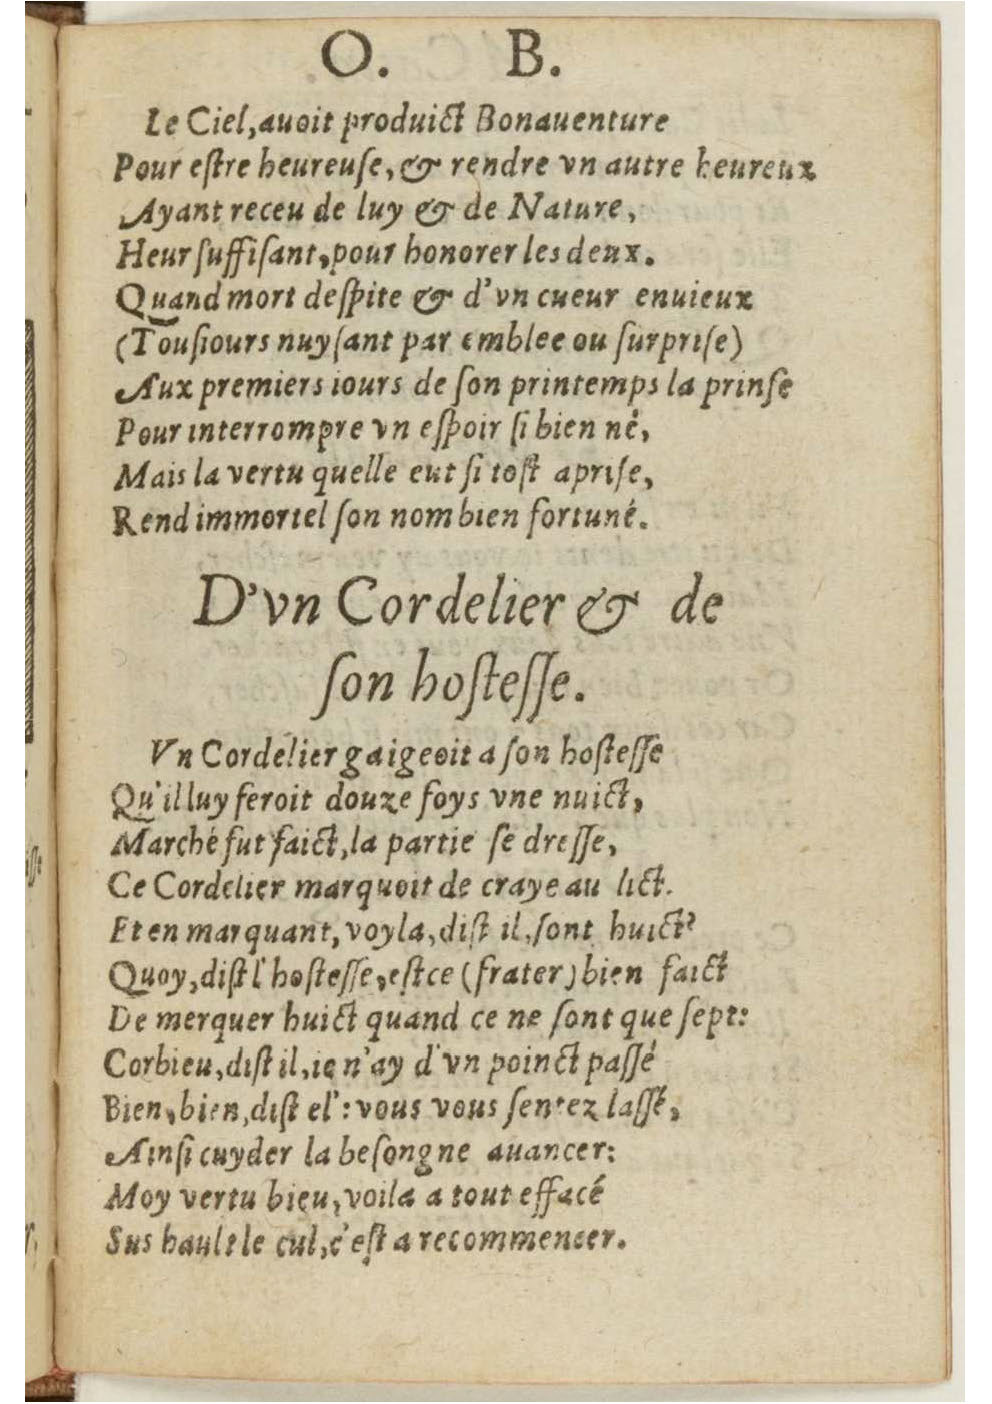 O. B.
Le Ciel, auoit produict Bonauenture
Pour eſtre heureuſe, & rendre vn autre heureux
Ayant receu de luy & de Nature,
Heur ſuffiſant, pour honorer les deux.
Quand mort deſpite & d'vn cueur enuieux
(Touſiours nuyſant par emblee ou ſurpriſe)
Aux premiers iours de ſon printemps la prinſe
Pour interrompre vn eſpoir ſi bien né,
Mais la vertu quelle eut ſi toſt apriſe,
Rend immortel ſon nom bien fortuné.
D'vn Cordelier & de
ſon hoſteſſe.
Vn Cordelier gaigeoit a ſon hoſteſſe
Qu'il luy feroit douze foys vne nuict,
Marché fut faict, la partie ſe dreſſe,
Ce Cordelier marquoit de craye au lict.
Et en marquant, voyla, diſt il, ſont huict?
Quoy, diſt l'hoſteſſe, eſtce (frater) bien faict
De merquer huict quand ce ne ſont que ſept:
Corbieu, diſt il, ie n'ay d'vn poinct paſſé
Bien, bien, diſt el': vous vous ſentez laſſé,
Ainſi cuyder la beſongne auancer:
Moy vertu bieu, voila a tout effacé
Sus hault le cul, c'eſt a recommencer.